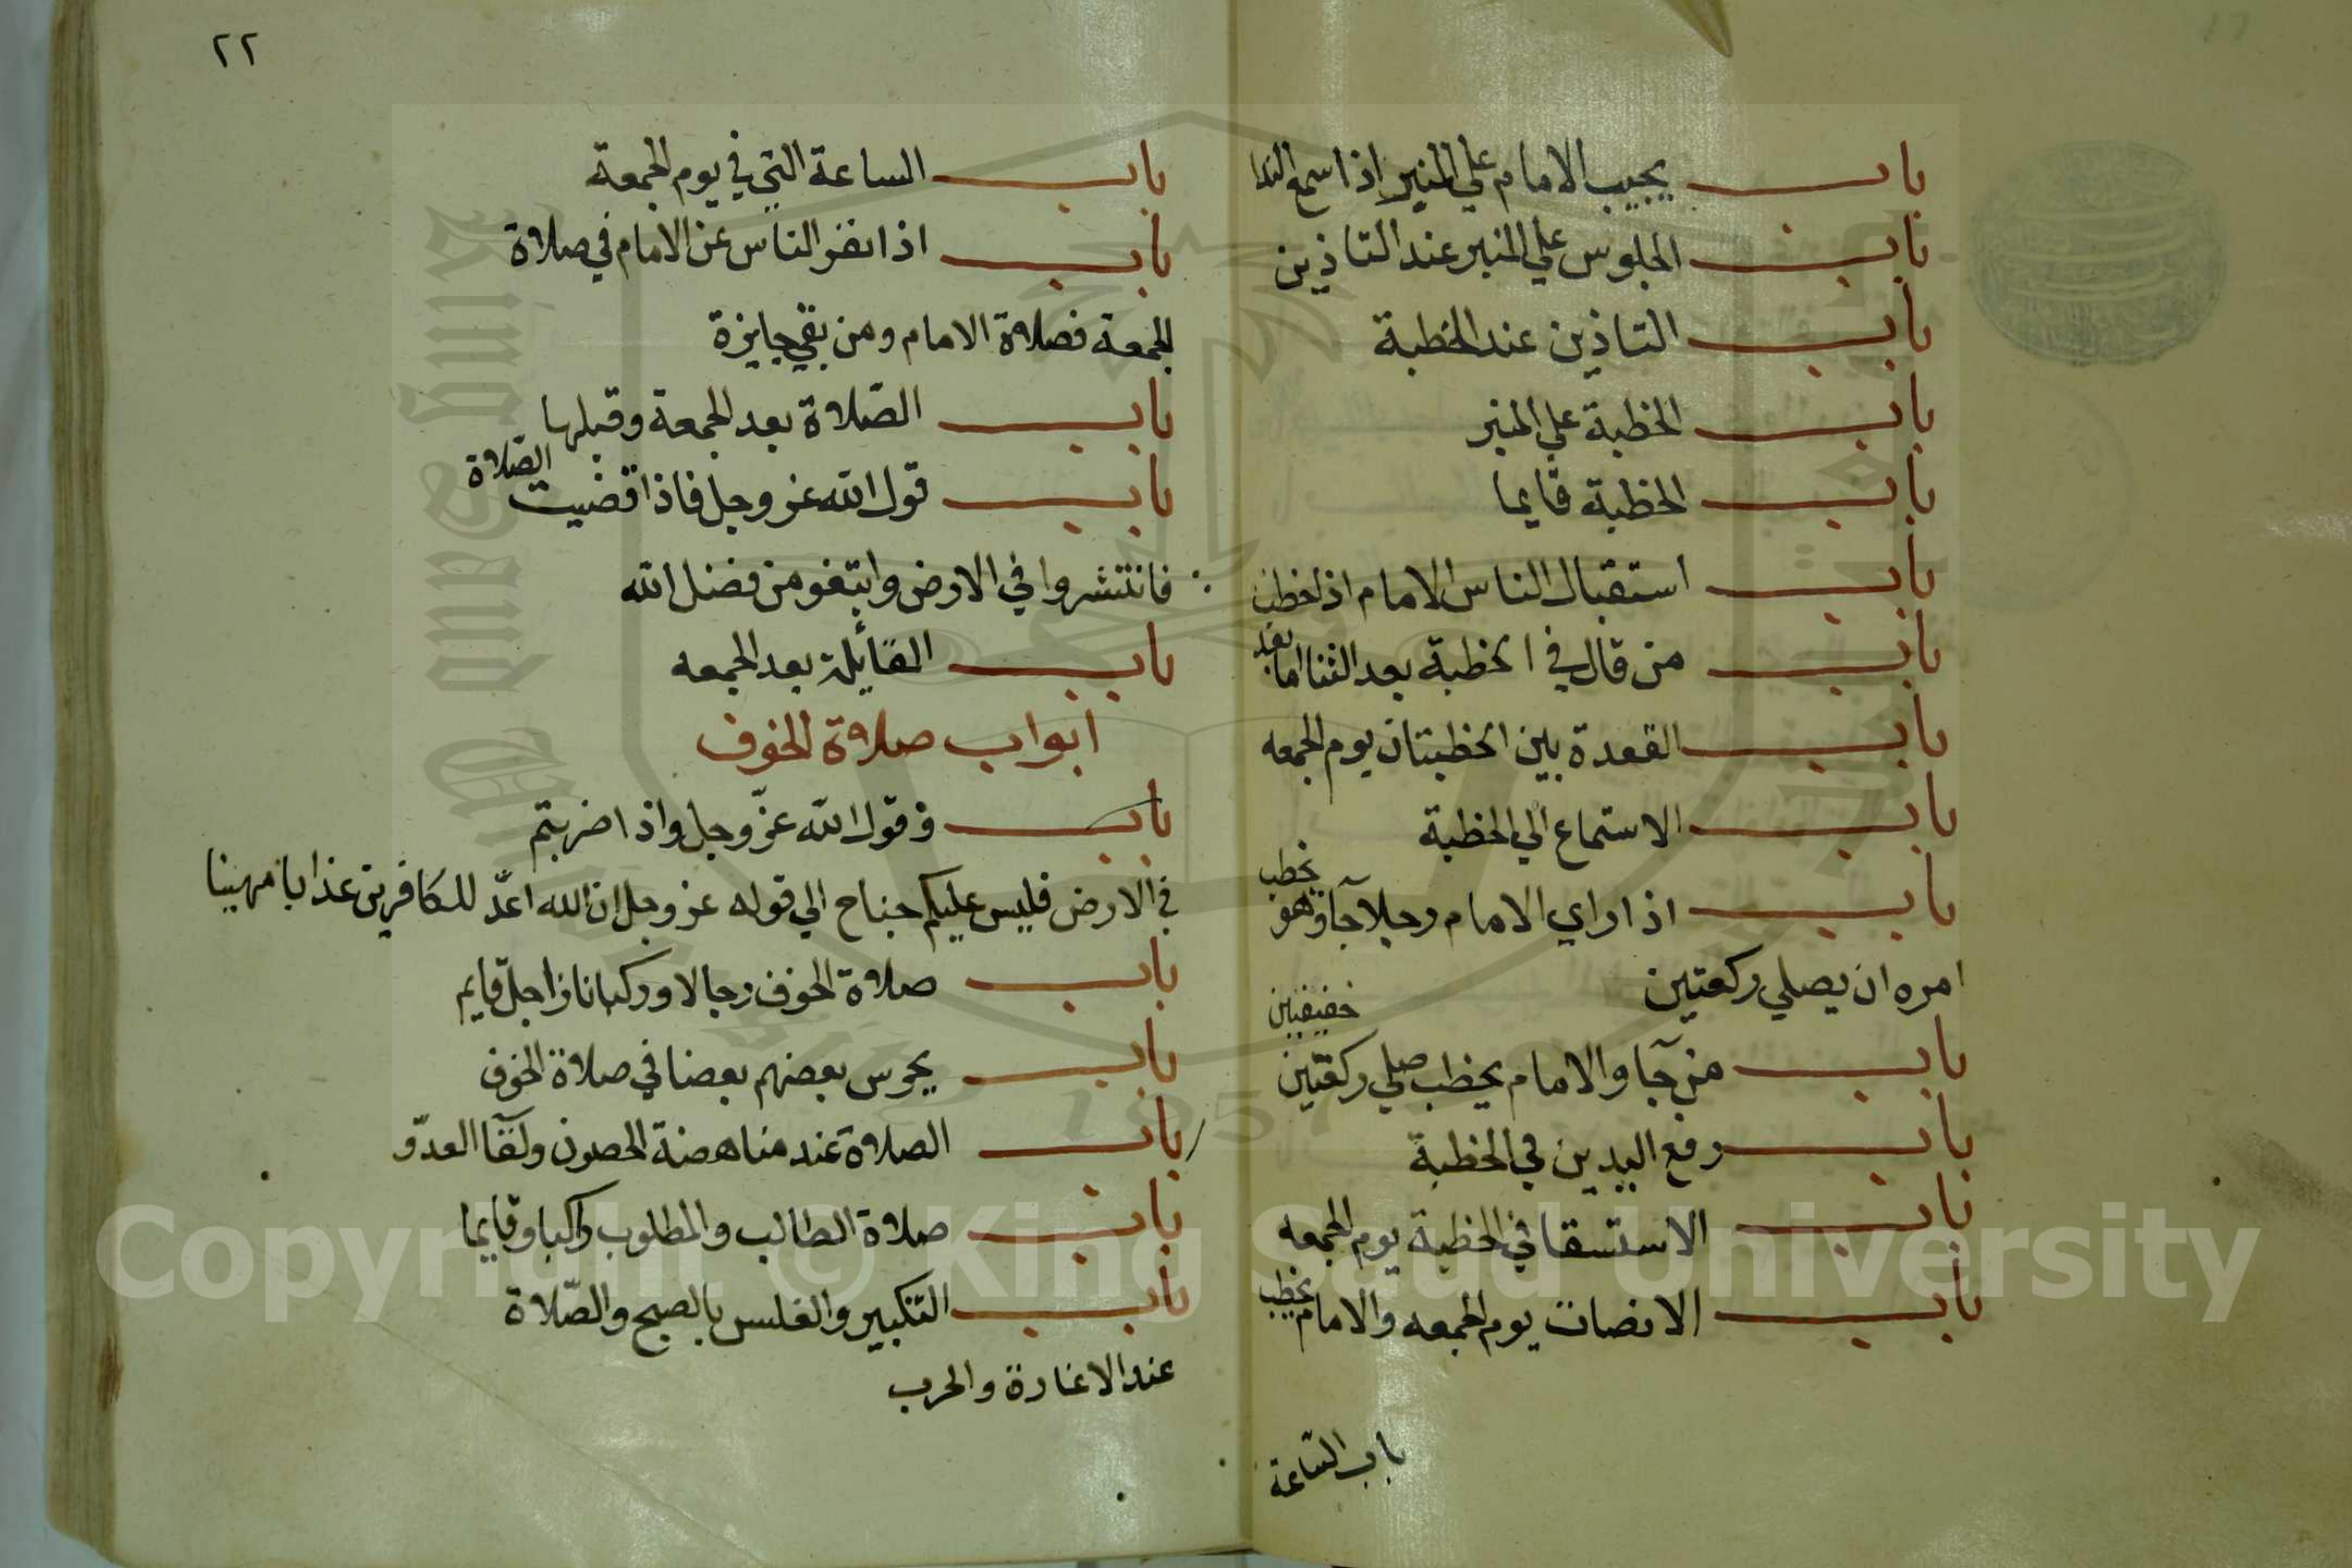 باب يجيب الامام علي المنبر اذا سمع الندا
باب الجلوس علي المنبر عند التاذين
باب التاذين عند الخطبة
باب الخطبة علي المنبر
باب الخطبة قايما
باب استقبال الناس الامام اذا خطب
باب من قال في الخطبة بعد الثنا اما بعد
باب القعدة بين الخطبتان يوم الجمعه
باب الاستماع الي الخطبة
باب اذا راي الامام رجلا جآ وهو يخطب
امره ان يصلي ركعتين
باب من جآ والامام يخطب صلي ركعتين خفيفتين
باب رفع اليدين في الخطبة
باب الاستسقا في الخطبة يوم الجمعه
باب الانصات يوم الجمعه والامام يخطب
باب الساعة
٢٢
باب الساعة التي في يوم الجمعة
باب اذا نفر الناس عن الامام في صلاة
الجمعة فصلاة الامام ومن بقي جايزة
باب الصّلاة بعد الجمعة وقبلها
باب قول الله عز وجل فاذا قضيت الصّلاة
فانتشروا في الارض وابتغو من فضل الله
باب القائلة بعد الجمعه
ابواب صلاة الخوف
باب وقول الله عزّ وجل واذا ضربتم
في الارض فليس عليكم جناح الي قوله عز وجل ان الله اعدّ للكافرين عذابا مهينا
باب صلاة الخوف رجالا وركبانا راجل قايم
باب يحرس بعضهم بعضا في صلاة الخوف
باب الصلاة عند مناهضة الحصون ولقآ العدوّ
باب صلاة الطالب والمطلوب راكبا وقايما
باب التكبير والغلس بالصبح والصّلاة
عند الاغارة والحرب
Copyright © King Saud University
King Saud University
1957